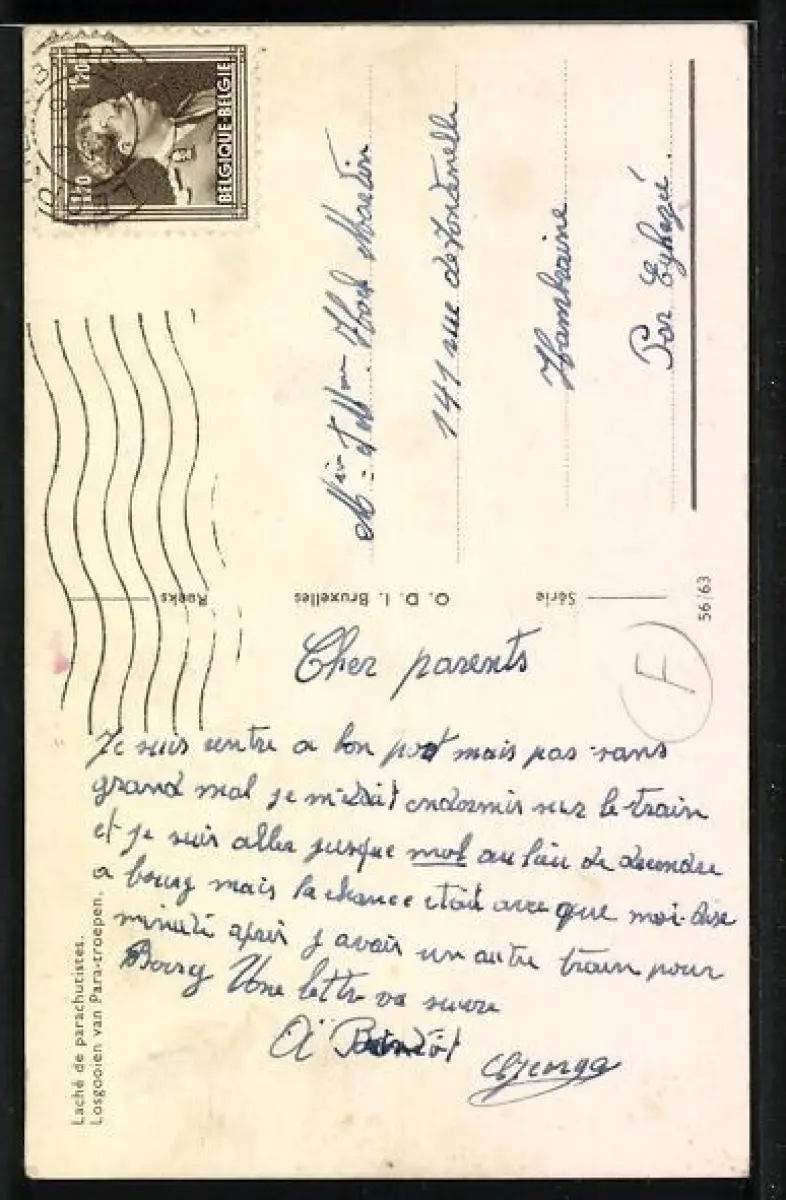 BELGIQUE-BELGIE
1F20
Mier et Mme
141 rue de
Hambraine
Par Eghezée
Série
O. D. I. Bruxelles
Reeks
56/63
F
Cher parents
Je suis rentre a bon port mais pas sans
grand mal je endormis sur le train
et je suis aller jusque mol au lieu de
a bourg mais la chance etait avec que moi
minute après j avais un autre train pour
Bourg Une lettre va suivre
A Bientôt
Laché de parachutistes.
Losgooien van Para-troepen.